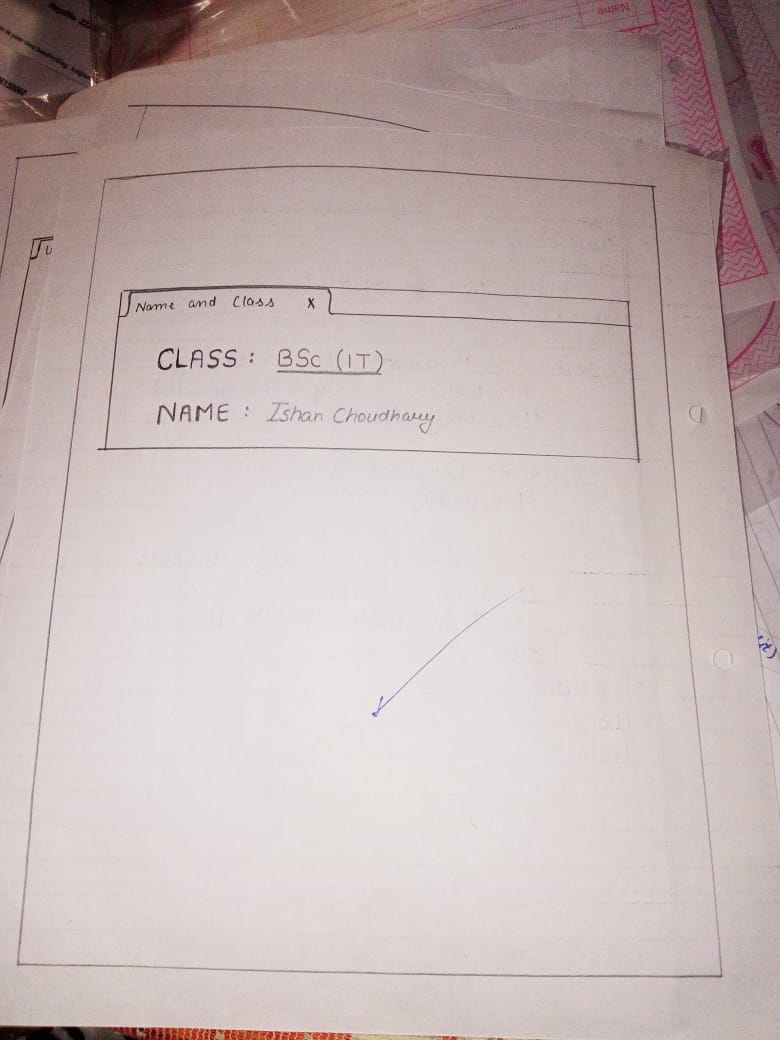 Name and Class x
CLASS : BSc (IT)
NAME : Ishan Choudhary
Name